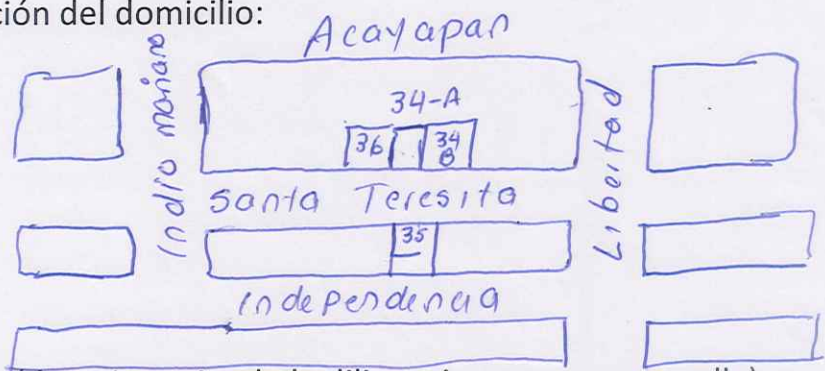 ción del domicilio:
Acayapan
Indio mariano
34-A
36
34
B
Libertad
Santa Teresita
35
Independencia